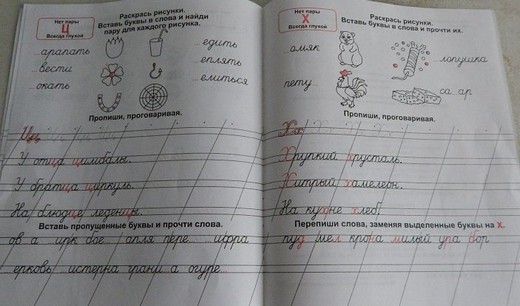 Нет пары
Ц
Всегда глухой
Раскрась рисунки.
Вставь буквы в слова и найди
пару для каждого рисунка.
...арапать
...вести
...окать
...едить
...еплять
...елиться
Пропиши, проговаривая.
Цц
У отца цимбалы.
У братца циркуль.
На блюдце леденцы.
Вставь пропущенные буквы и прочти слова.
ов...а ...ирк бое... ...апля пере... ...ифра
...ерковь ...истерна грани...а огуре...
Нет пары
Х
Всегда глухой
Раскрась рисунки.
Вставь буквы в слова и прочти их.
...омяк
...лопушка
пету...
са...ар
Пропиши, проговаривая.
Хх
Хрупкий хрусталь.
Хитрый хамелеон.
На кухне хлеб.
Перепиши слова, заменяя выделенные буквы на х.
пуд мел крона милый ура вор